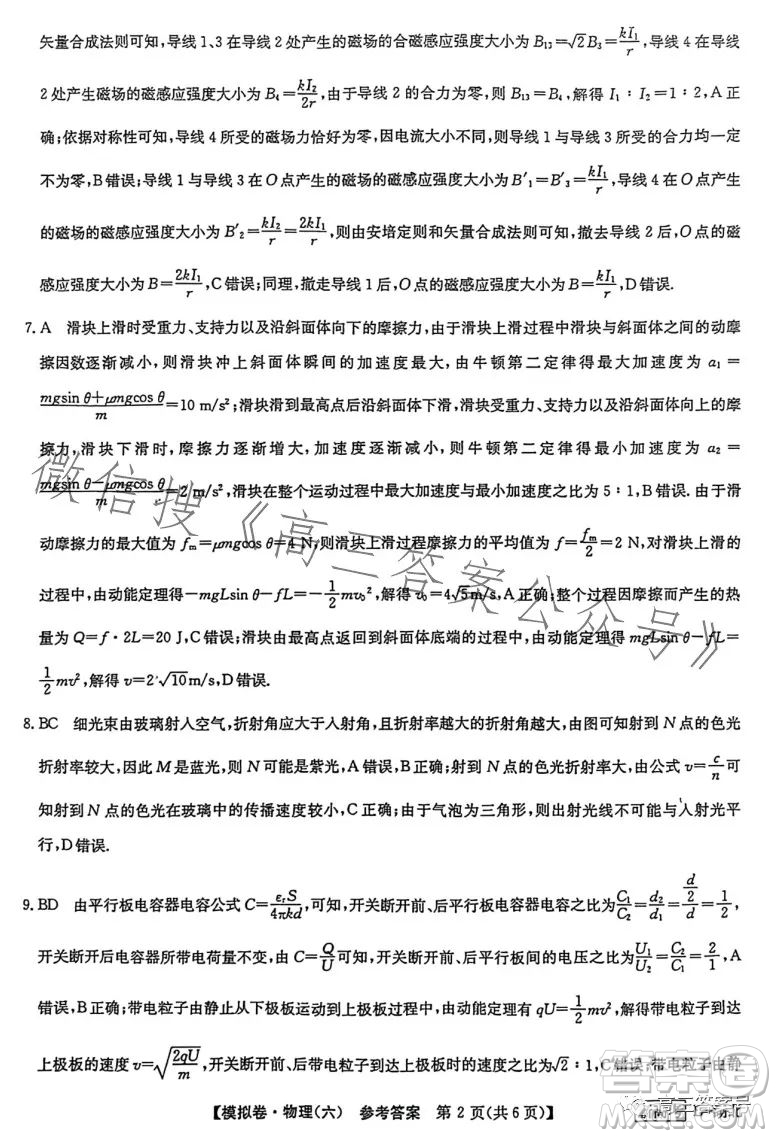 矢量合成法则可知,导线1、3在导线2处产生的磁场的合磁感应强度大小为B₁₃=√2B₃=kI₁/r,导线4在导线
2处产生磁场的磁感应强度大小为B₄=kI₂/2r,由于导线2的合力为零,则B₁₃=B₄,解得I₁:I₂=1:2,A正
确;依据对称性可知,导线4所受的磁场力恰好为零,因电流大小不同,则导线1与导线3所受的合力均一定
不为零,B错误;导线1与导线3在O点产生的磁场的磁感应强度大小为B'₁=B'₃=kI₁/r,导线4在O点产生
的磁场的磁感应强度大小为B'₂=kI₂/r=2kI₁/r,则由安培定则和矢量合成法则可知,撤去导线2后,O点的磁
感应强度大小为B=2kI₁/r,C错误;同理,撤走导线1后,O点的磁感应强度大小为B=kI₁/r,D错误.
7. A 滑块上滑时受重力、支持力以及沿斜面体向下的摩擦力,由于滑块上滑过程中滑块与斜面体之间的动摩
擦因数逐渐减小,则滑块冲上斜面体瞬间的加速度最大,由牛顿第二定律得最大加速度为a₁=
mgsin θ+μmgcos θ/m=10 m/s²;滑块滑到最高点后沿斜面体下滑,滑块下滑时受沿斜面体向上的摩
擦力,滑块下滑时,摩擦力逐渐增大,加速度逐渐减小,则由牛顿第二定律得最小加速度为a₂=
mgsin θ-μmgcos θ/m=2 m/s²,滑块在整个运动过程中最大加速度与最小加速度之比为5:1,B错误.由于滑
动摩擦力的最大值为fₘ=μmgcos θ=4 N,则滑块上滑过程摩擦力的平均值为f=fₘ/2=2 N,对滑块上滑
过程中,由动能定理得-mgLsin θ-fL=-1/2mv₀²,解得v₀=4√5m/s,A正确;整个过程因摩擦而产生的热
量为Q=f·2L=20 J,C错误;滑块由最高点返回到斜面体底端的过程中,由动能定理得mgLsin θ-fL=
1/2mv²,解得v=2√10m/s,D错误.
8. BC 细光束由玻璃射入空气,折射角应大于入射角,且折射率越大折射角越大,由图可知射到N点的色光
折射率较大,因此M是蓝光,则N可能是紫光,A错误,B正确;射到N点的色光折射率大,由公式v=c/n可
知射到N点的色光在玻璃中的传播速度较小,C正确;由于气泡为三角形,则出射光线不可能与入射光平
行,D错误.
9. BD 由平行板电容器电容公式C=εᵣS/4πkd可知,开关断开前、后平行板电容器电容之比为C₁/C₂=d₂/d₁=(d/2)/d=1/2,
开关断开后电容器所带电荷量不变,由C=Q/U可知,开关断开前、后平行板间的电压之比为U₁/U₂=C₂/C₁=2/1,A
错误,B正确;带电粒子由静止从下极板运动到上极板过程中,由动能定理有qU=1/2mv²,解得带电粒子到达
上极板的速度v=√(2qU/m),开关断开前、后带电粒子到达上极板时的速度大小之比为√2:1,C错误;带电粒子由静
【模拟卷·物理(六) 参考答案 第2页(共6页)】
微信搜《高三答案公众号》